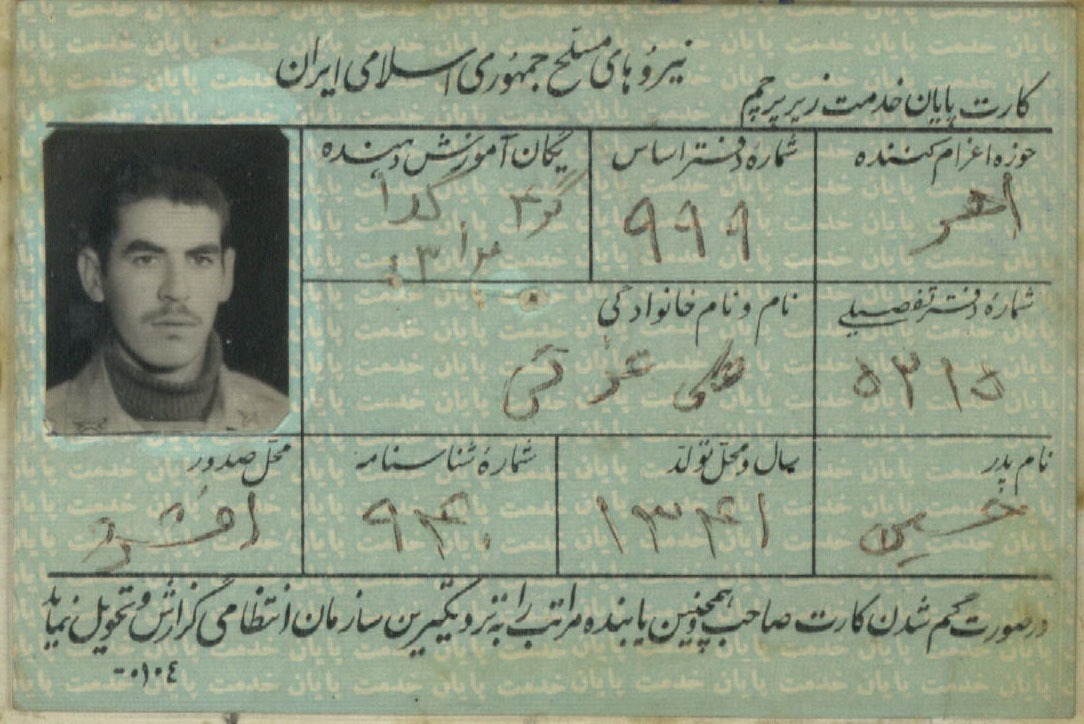 نیروهای مسلح جمهوری اسلامی ایران
کارت پایان خدمت زیر پرچم
حوزه اعزام کننده
شماره دفتر اساس
یگان آموزش دهنده
اهر
۹۹۹
شماره دفتر تفصیلی
نام و نام خانوادگی
۵۳۱۵
علی
نام پدر
سال و محل تولد
شماره شناسنامه
محل صدور
حسین
۱۳۴۱
۹۴۰
درصورت گم شدن کارت صاحب و همچنین یابنده مراتب را به نزدیکترین سازمان انتظامی گزارش و تحویل نماید
۰۱۰۴-